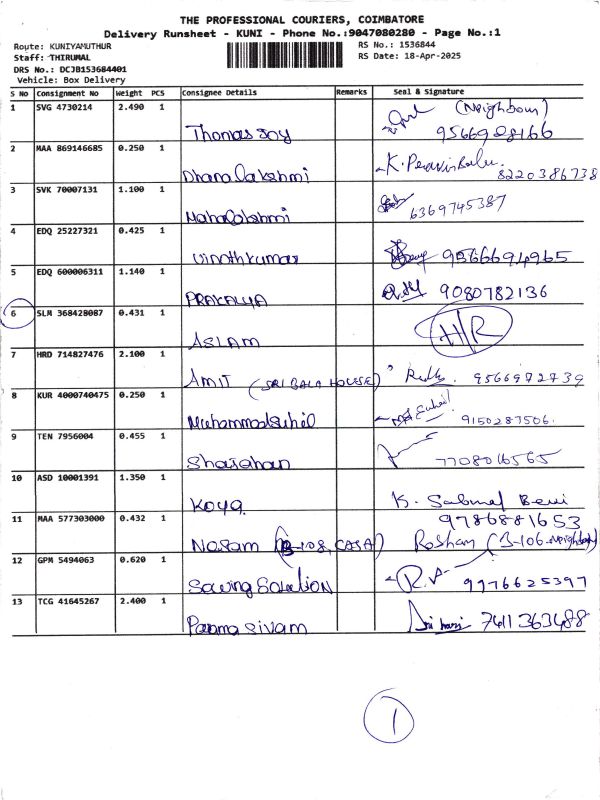 THE PROFESSIONAL COURIERS, COIMBATORE
Delivery Runsheet - KUNI - Phone No.:9047080280 - Page No.:1
Route: KUNIYAMUTHUR RS No.: 1536844
Staff: THIRUMAL RS Date: 18-Apr-2025
DRS No.: DCJB153684401
Vehicle: Box Delivery
S No Consignment No Weight PCS Consignee Details Remarks Seal & Signature
1 SVG 4730214 2.490 1 (Neighbour)
Thomas Joy
2 MAA 869146685 0.250 1 K.
Dhana Lakshmi 8220386738
3 SVK 70007131 1.100 1
Mahalakshmi 6369745387
4 EDQ 25227321 0.425 1
Vinothkumar 9566694965
5 EDQ 600006311 1.140 1
PRAKALYA 9080782136
6 SLM 368428087 0.431 1 H/R
ASLAM
7 HRD 714827476 2.100 1
AMIT (SRI BALA HOUSE) 9566972739
8 KUR 4000740475 0.250 1
Muhammad Suhil 9150287506.
9 TEN 7956004 0.455 1
Shajahan 7708016565
10 ASD 10001391 1.350 1
Koya K.
11 MAA 577303000 0.432 1 9786881653
(B-108, CASA) Roshan (B-106-Neighbour)
12 GPM 5494063 0.620 1 R.
9976625397
13 TCG 41645267 2.400 1
Parama sivam Sri hari 7411363488
1